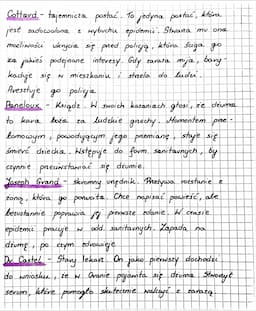 Cottard - tajemnicza postać. To jedyna postać, która
jest zadowolona z wybuchu epidemii. Stwarza mu ona
możliwość ukrycia się przed policją, która ściga go
za jakieś podejrzane interesy. Gdy zaraza mija, bary-
kaduje się w mieszkaniu i strzela do ludzi.
Aresztuje go policja.
Paneloux - Ksiądz. W swoich kazaniach głosi, że dżuma
to kara boża za ludzkie grzechy. Momentem prze-
łomowym, powodującym jego przemianę, staje się
śmierć dziecka. Wstępuje do form. sanitarnych, by
czynnie przeciwstawiać się dżumie.
Joseph Grand - skromny urzędnik. Przeżywa rozstanie z
żoną, która go porzuciła. Chce napisać powieść, ale
bezustannie poprawia jej pierwsze zdanie. W czasie
epidemii pracuje w odd. sanitarnych. Zapada na
dżumę, po czym zdrowieje.
Dr Castel - Stary lekarz. On jako pierwszy dochodzi
do wniosku, że w Oranie pojawiła się dżuma. Stworzył
serum, które pomogło skutecznie walczyć z zarazą.